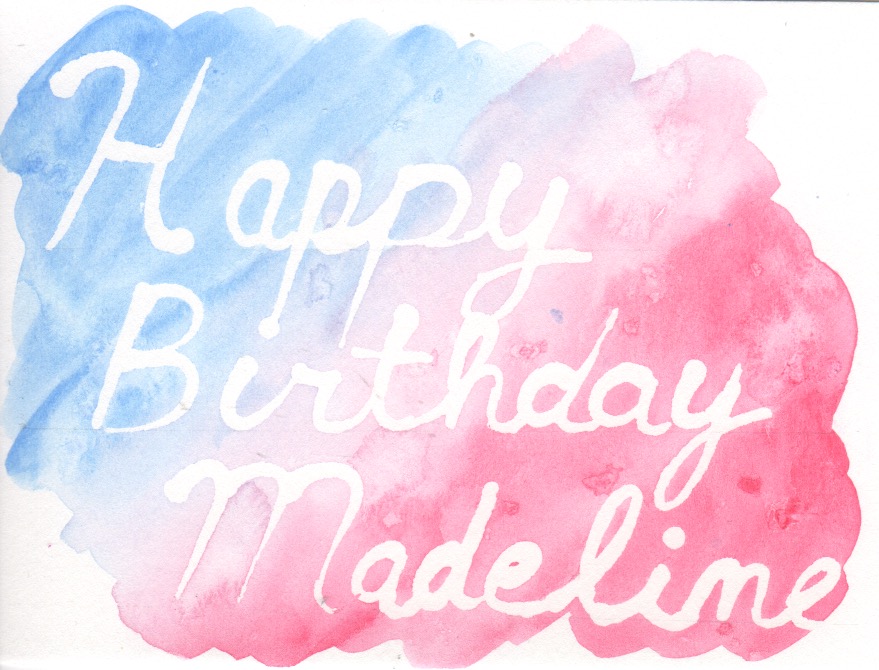 Happy
Birthday
Madeline